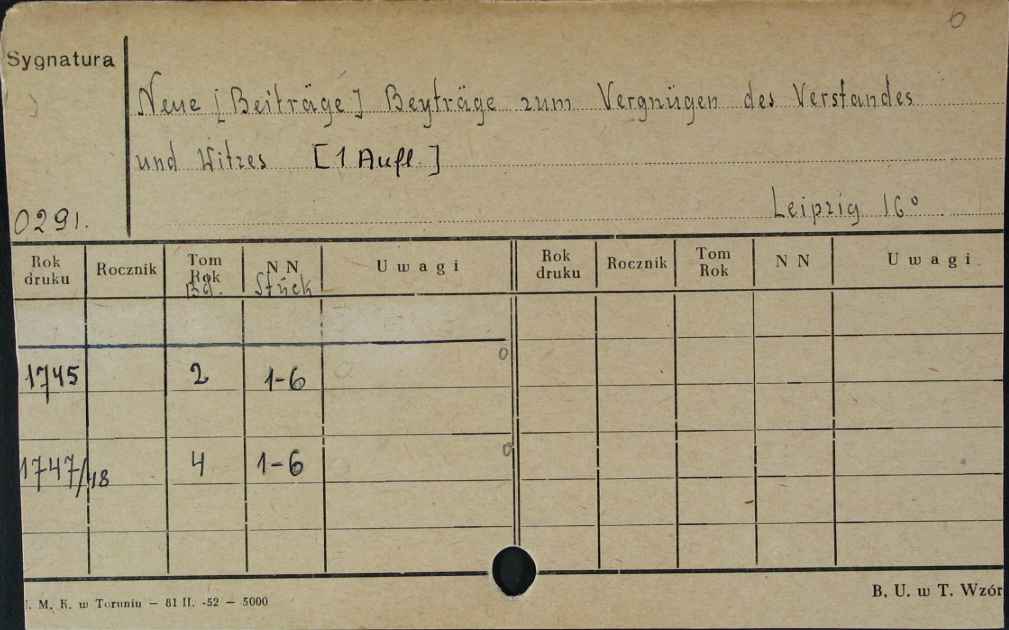 0
Sygnatura
Neue [Beiträge] Beyträge zum Vergnügen des Verstandes
und Witzes [1 Aufl.]
0291.
Leipzig 16°
Rok druku Rocznik Tom Rok Bd. NN Stück Uwagi Rok druku Rocznik Tom Rok NN Uwagi
1745 2 1-6 0
1747/48 4 1-6 0
. M. K. w Toruniu — 81 II. -52 — 5000
B. U. w T. Wzór